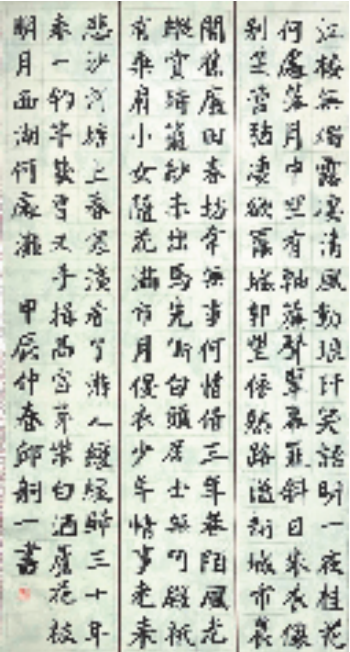 江樓無燭露淒清風動琅玕笑語明一夜桂花
何處落月中空有軸簾聲斜日
城郭望依然路溢新城市
舊田春坊無事何惜借三年巷陌風光
縱賞時籠紗未出馬先嘶白頭居士無呵殿祇
有乘肩小女隨花滿市月侵衣少年情事老來
悲沙河塘上春寒淺看了游人緩緩歸三十年
來一釣竿幾曾叉手揖高官茅柴白酒蘆花被
明月西湖何處灘 甲辰仲春邱一書